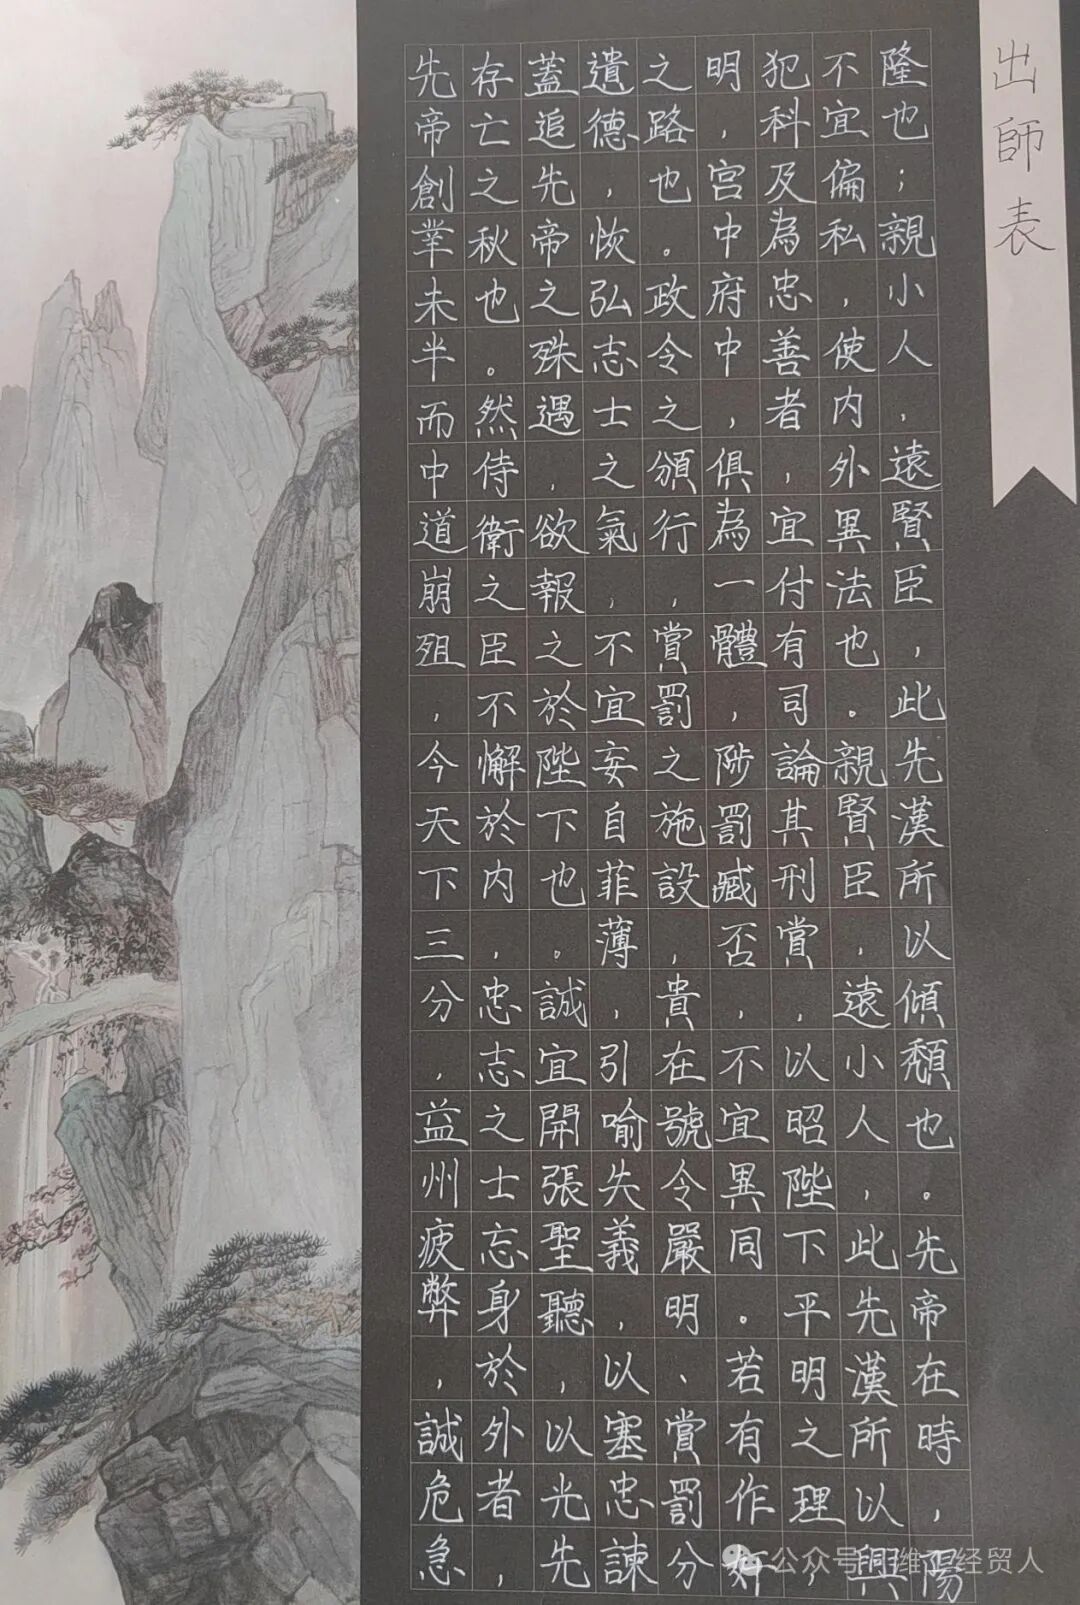 出師表
先帝創業未半而中道崩殂，今天下三分，益州疲弊，誠危急
存亡之秋也。然侍衛之臣不懈於內，忠志之士忘身於外者，
蓋追先帝之殊遇，欲報之於陛下也。誠宜開張聖聽，以光先
遺德，恢弘志士之氣，不宜妄自菲薄，引喻失義，以塞忠諫
之路也。政令之頒行，賞罰之施設，貴在號令嚴明、賞罰分
明，宮中府中，俱為一體，陟罰臧否，不宜異同。若有作奸
犯科及為忠善者，宜付有司論其刑賞，以昭陛下平明之理，
不宜偏私，使內外異法也。親賢臣，遠小人，此先漢所以興
隆也；親小人，遠賢臣，此先漢所以傾頹也。先帝在時，陽
公众号 维 经贸人